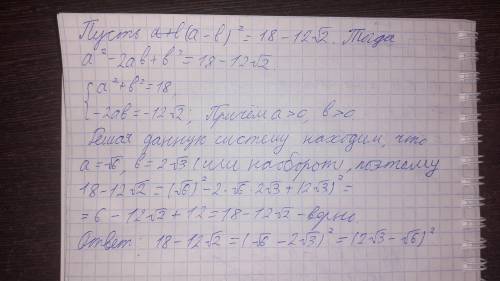 Пусть (a-b)² = 18-12√2. Тогда
a²-2ab+b² = 18-12√2.
{a²+b² = 18,
-2ab = -12√2; Причём a>0, b>0.
Решая данную систему находим, что
a=√6, b=2√3 (или наоборот), поэтому
18-12√2 = (√6)²-2·√6·2√3+(2√3)² =
= 6-12√2+12 = 18-12√2 - верно.
Ответ: 18-12√2 = (√6-2√3)² = (2√3-√6)²